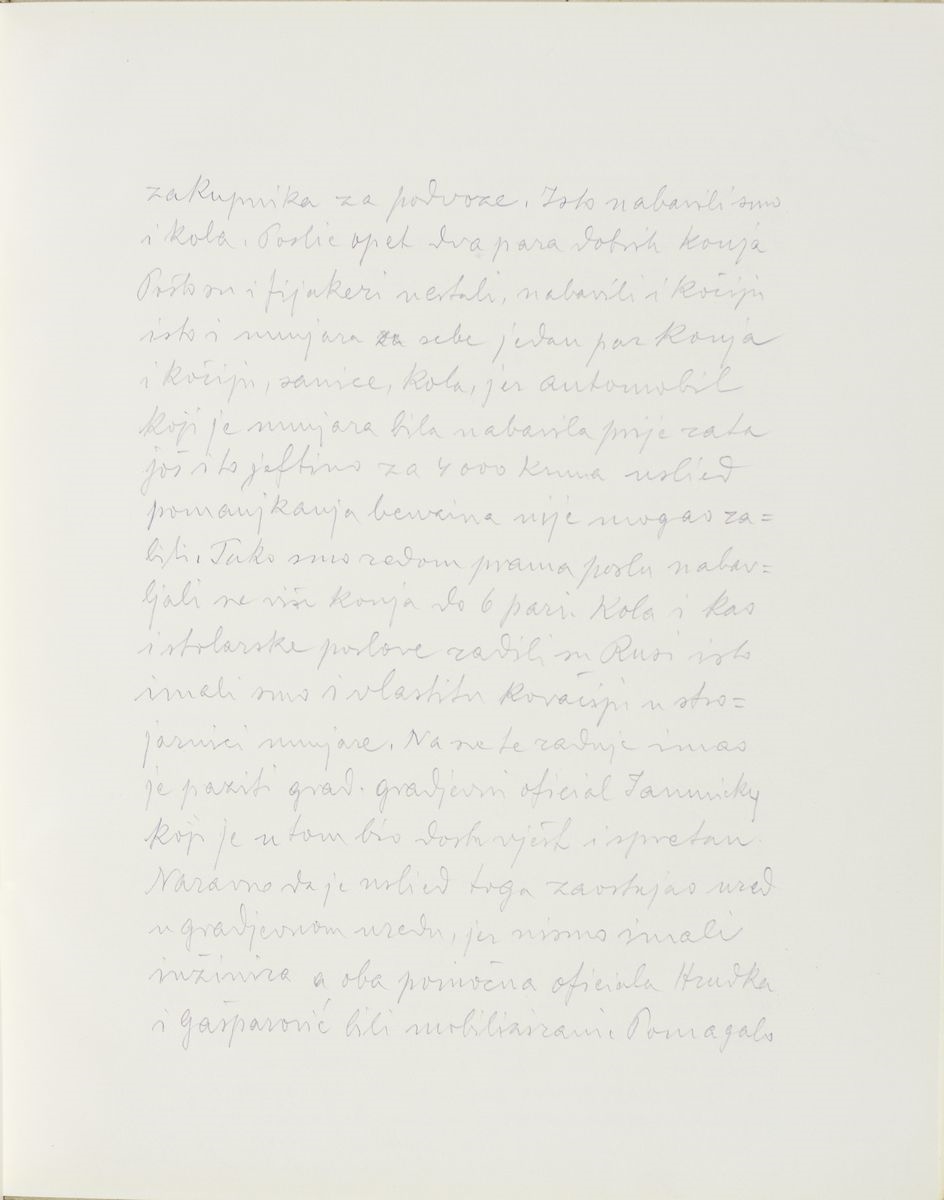 zakupnika za podvoze. Isto nabavili smo
i kola. Poslie opet dva para dobrih konja
Pošto su i fijakeri nestali, nabavili i kočiju
isto i munjara za sebe jedan par konja
i kočiju, sanice, kola, jer automobil
koji je munjara bila nabavila prije rata
još i to jeftino za 4000 kruna uslied
pomanjkanja benzina nije mogao ra=
biti. Tako smo redom prama poslu nabav=
ljali sve više konja do 6 pari. Kola i kao
i stolarske poslove radili su Rusi isto
imali smo i vlastitu kovačiju u stro=
jarnici munjare. Na sve te radnje imao
je paziti grad. gradjevni oficial
koji je u tom bio dosta vješt i spretan.
Naravno da je uslied toga zaostajao ured
u gradjevnom uredu, jer nismo imali
inžinira a oba pomoćna oficiala Hrudka
i Gašparović bili mobilizirani. Pomagalo